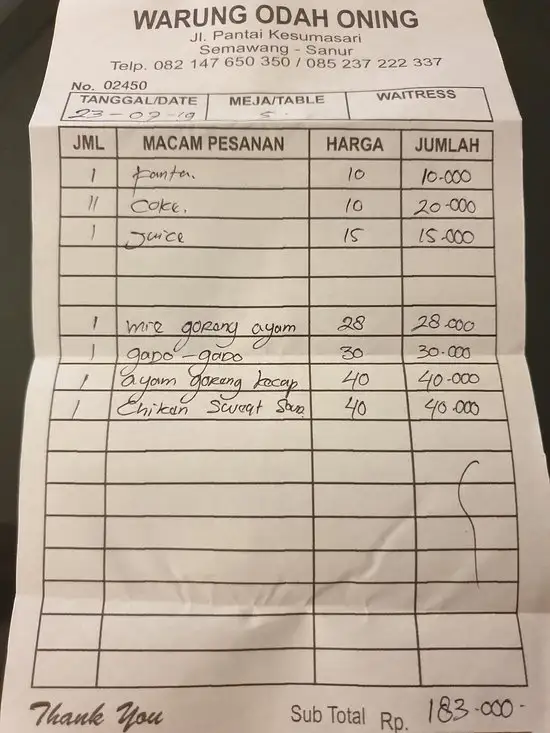 WARUNG ODAH ONING
Jl. Pantai Kesumasari
Semawang - Sanur
Telp. 082 147 650 350 / 085 237 222 337
No. 02450
TANGGAL/DATE MEJA/TABLE WAITRESS
23-07-19 5.
JML MACAM PESANAN HARGA JUMLAH
1 Fanta. 10 10.000
11 Coke. 10 20.000
1 Juice 15 15.000
1 mie goreng ayam 28 28.000
1 gado-gado 30 30.000
1 ayam goreng kecap 40 40.000
1 Chikan Sweat Sau 40 40.000
Thank You Sub Total Rp. 183.000-